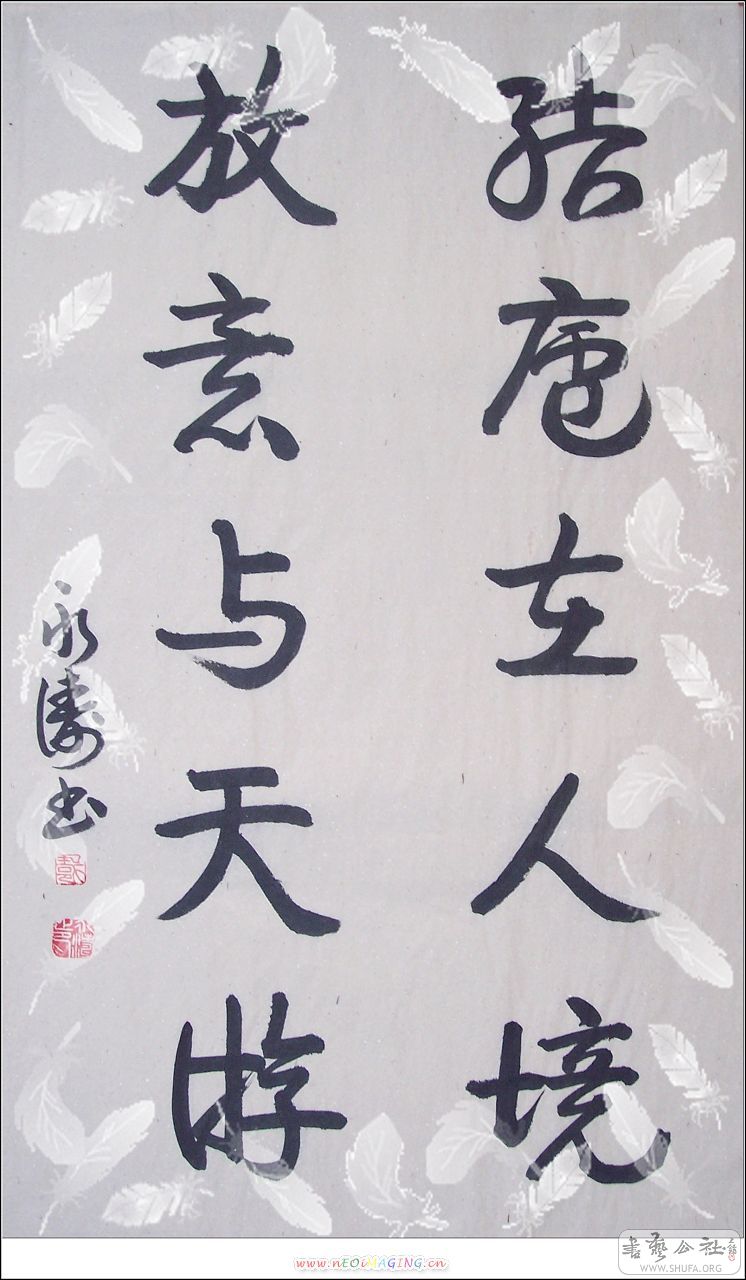 结庐在人境
放意与天游
永涛书
书艺公社
WWW.SHUFA.ORG
www.nEOiMAGiNG.cn